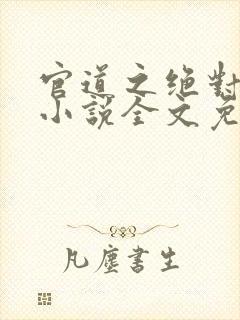 官道之绝對
小說全文免
凡塵書生